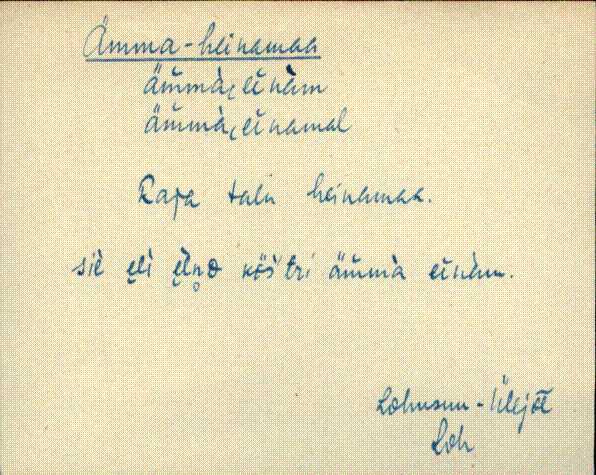 Ämma-heinamaa
ämmà, einàm
ämmà, einamal
Raja talu heinamaa.
siè köstri ämmà einàm.
Lohusuu-Ülejõe
Loh